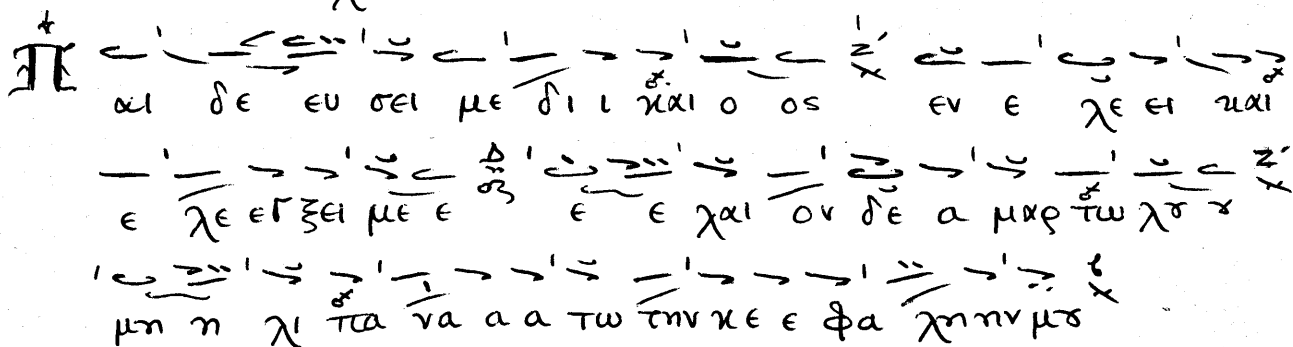 Π αι δε ευ σει με δι ι και ο ος εν ε λε ει και
ε λε εγ ξει με ε ε ε λαι ον δε α μαρ τω λȣ ȣ
μη η λι πα να α α τω την κε ε φα λη ην μȣ